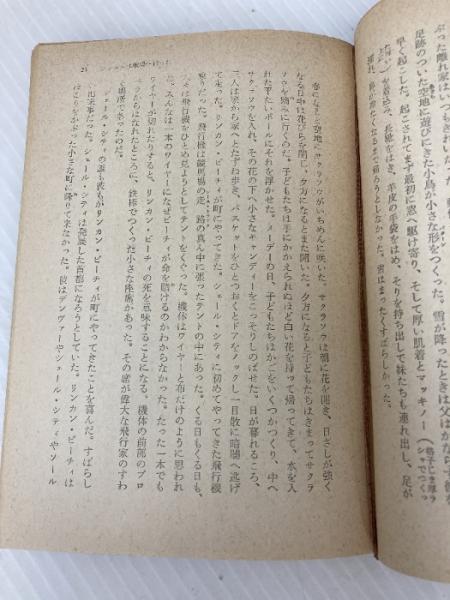 ぶった離れ家はいつもきれいだった。
足跡のついた空地に遊びにきた小鳥が小さな形をつくった。雪が降ったときは父はかならず
早く起こした。起こされてまず最初に窓へ駆け寄り、そして厚い肌着とマッキノー（格子じま厚ラシャでつくっ
を着込み、長靴をはき、羊皮の手袋をはめ、そりを持ち出して妹たちも連れ出し、足が
れ、鼻が冷たくなるまで帰ろうとしなかった。雪はまったくすばらしかった。
21
春になると空地にサクラソウがいちめんに咲いた。サクラソウは朝に花を開き、日ざしが強く
なる日中は花びらを閉じ、夕方になるとまた開いた。夕方になると子どもたちはきまってサクラ
ソウを摘みに行くのだ。子どもたちは手にかかえられぬほど白い花を持って帰ってきて、水を入
れた平たいボールにそれを浮かせた。メーデーの日、子どもたちはかごをいくつかつくり、中へ
サクラソウを入れ、その花の下へ小さなキャンディーをこっそりしのばせた。日が暮れるころ、
二人は家から家へとたずね歩き、バスケットをひとつおくとドアをノックし一目散に暗闇へ逃げ
て走った。リンカン・ビーチィが町にやってきた。シェール・シティに初めてやってきた飛行機
乗りだった。飛行機は競馬場の走路の真ん中に張ったテントの中にあった。くる日もくる日も、
町の人々は飛行機をひとめ見ようとしてテントをくぐった。機体はワイヤーと布だけのように思われ
た。みんなは一本のワイヤーになぜビーチィが命を賭けるのかわからなかった。たった一本でも
ワイヤーが切れたりすると、リンカン・ビーチィの死を意味することになる。機体の前部のプロ
ペラからはなれたところに、鉄棒でつくった小さな座席があった。その席が偉大な飛行家のすわ
る場所であったのだ。
シェール・シティの誰も彼もがリンカン・ビーチィが町にやってきたことを喜んだ。すばらし
い出来事だった。シェール・シティは発展した首都になろうとしていた。リンカン・ビーチィは
ほこりをかぶった小さな町に降りて来なかった。彼はデンヴァーやシェール・シティやソール